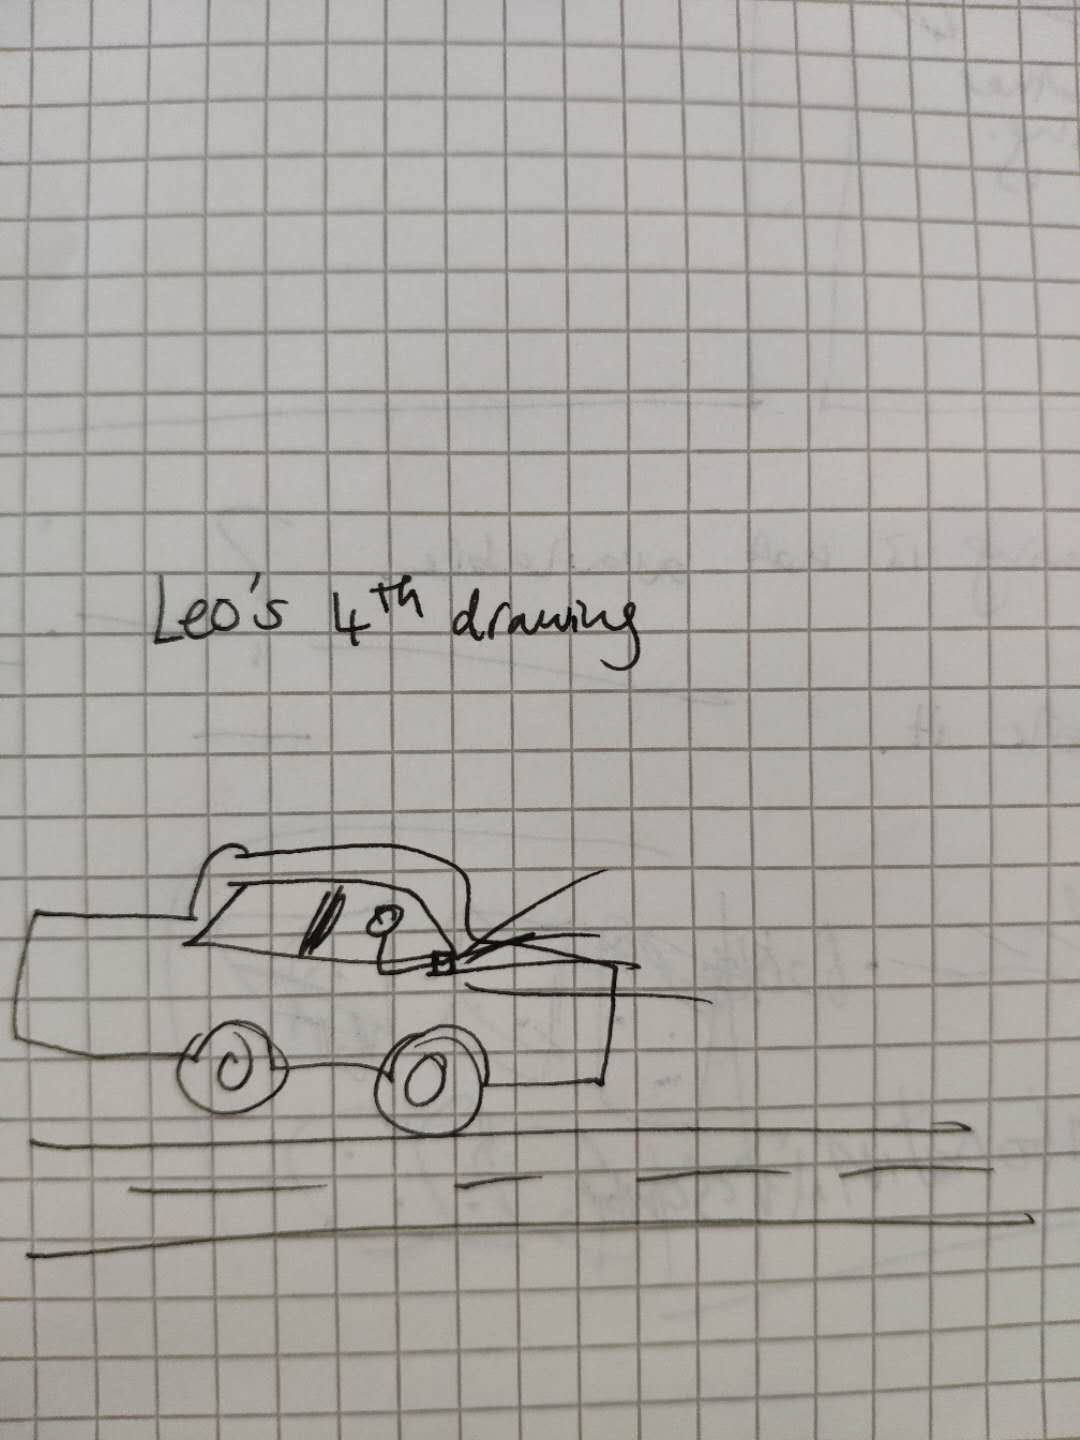 Leo's 4th drawing